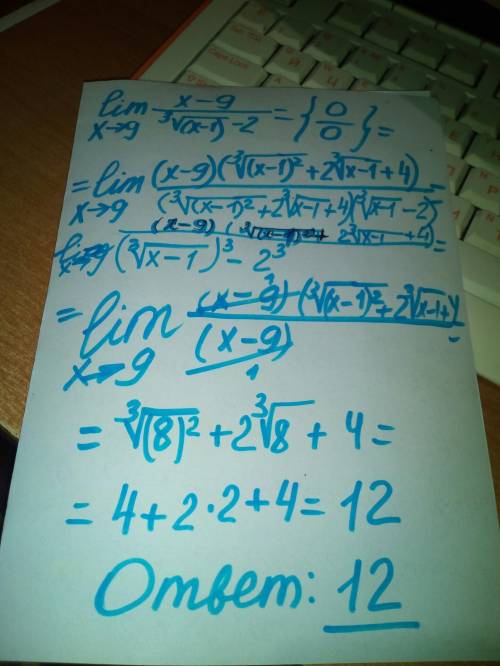 lim x→9 (x-9)/(∛(x-1) -2) = {0/0} =
= lim x→9 (x-9)(∛(x-1)² + 2∛x-1 + 4)/(∛(x-1)² + 2∛x-1 + 4)(∛x-1 -2) =
lim x→9 (x-9)(∛(x-1)² + 2∛x-1 + 4)/(∛x-1)³ - 2³ =
= lim x→9 (x-9)(∛(x-1)² + 2∛x-1 + 4)/(x-9) =
= ∛(8)² + 2∛8 + 4 =
= 4 + 2·2 + 4 = 12
Ответ: 12